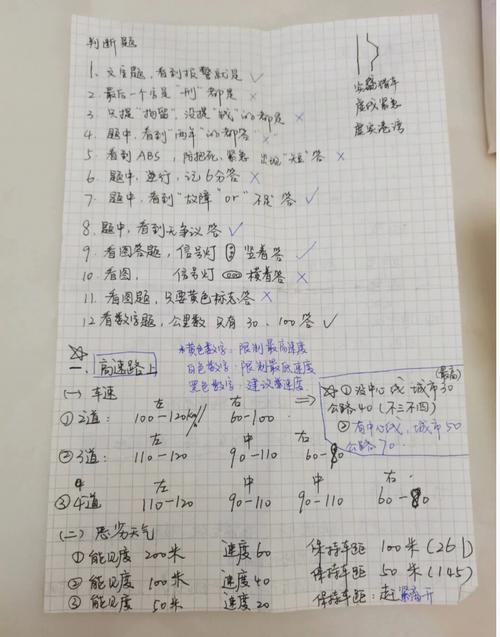 判断题
1. 文字题,看到报警就是 ✓
2. 最后一个字是“刑”都是 ×
3. 只提“拘留”,没提“钱”的都是 ×
4. 题中,看到“两年”的都答 ×
5. 看到ABS,防抱死,紧急 出现“短”答 ×
6. 题中,逆行,记6分答 ×
7. 题中,看到“故障”or“不足”答 ✓
8. 题中,看到无争议答 ✓
9. 看图答题,信号灯 竖着答 ✓
10. 看图, 信号灯 横着答 ×
11. 看图题,只要黄色标志答 ×
12. 看数字题,公里数 只有30、100答 ✓
实线
虚线
虚实港湾
黄色数字:限制最高速度
白色数字:限制最低速度
黑色数字:建议速度
一、高速路上
(一) 车速
左 右
① 2道: 100-120 60-100
左 中 右
② 3道: 110-120 90-110 60-90
4 左 中 右
③ 4道 110-120 90-110 90-110 60-90
(最高)
① 没中心线,城市30
公路40(不三不四)
② 有中心线,城市50
公路70
(二) 恶劣天气
① 能见度 200米 速度60 保持车距 100米(261)
② 能见度 100米 速度40 保持车距 50米(145)
③ 能见度 50米 速度20 保持车距:赶紧离开